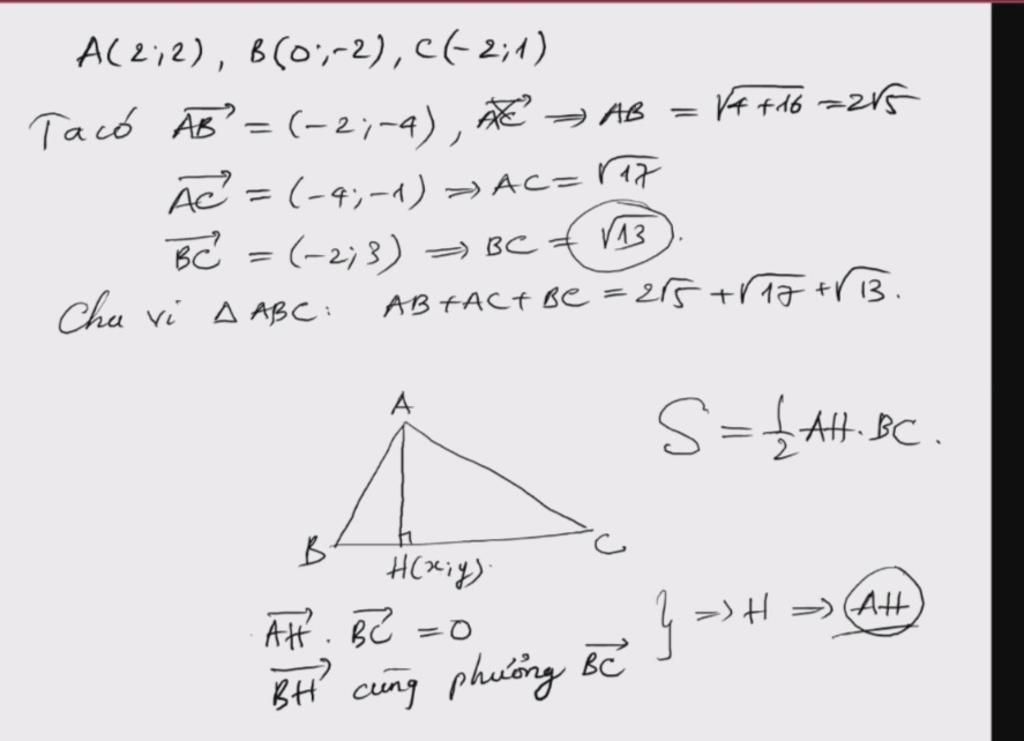 A(2;2), B(0;-2), C(-2;1)
Ta có $\overrightarrow{AB}$ = (-2;-4), ⇒ AB = √(4+16) = 2√5
$\overrightarrow{AC}$ = (-4;-1) ⇒ AC = √17
$\overrightarrow{BC}$ = (-2;3) ⇒ BC = √13.
Chu vi Δ ABC: AB + AC + BC = 2√5 + √17 + √13.
A
S = 1/2 AH. BC.
B
C
H(x;y).
$\overrightarrow{AH}$ . $\overrightarrow{BC}$ = 0
} ⇒ H ⇒ AH
$\overrightarrow{BH}$ cùng phương $\overrightarrow{BC}$